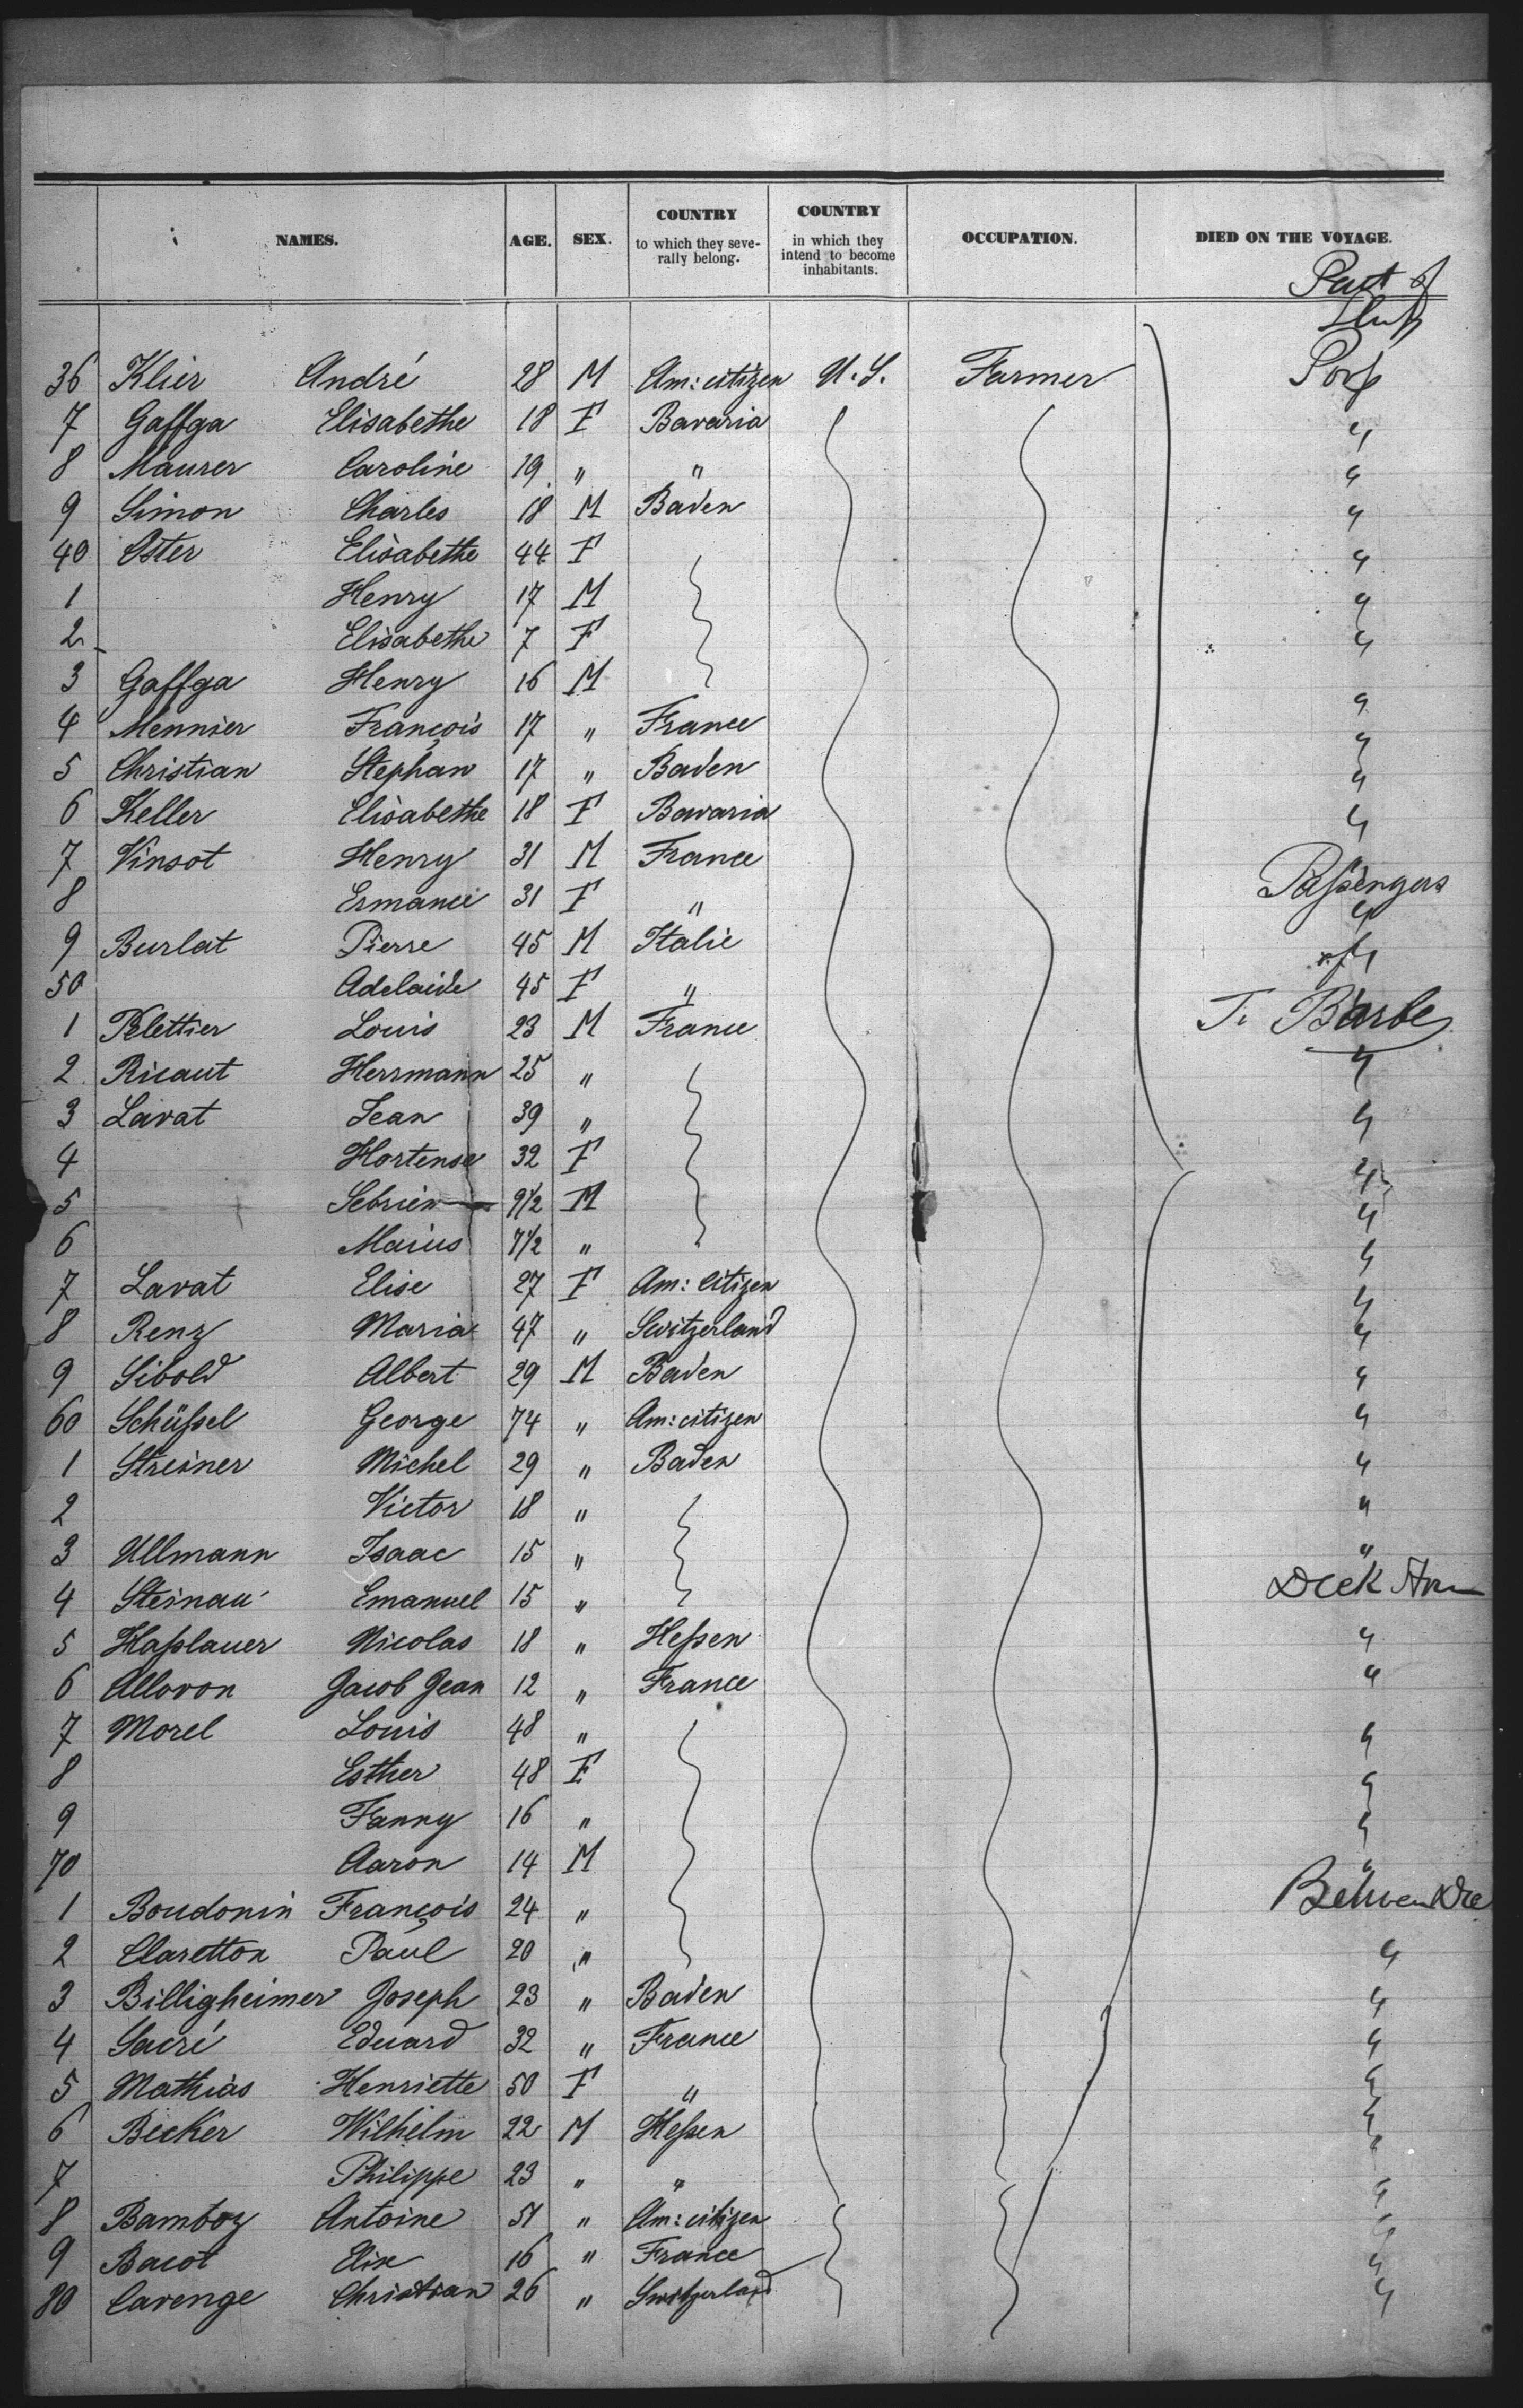 NAMES. AGE. SEX. COUNTRY to which they severally belong. COUNTRY in which they intend to become inhabitants. OCCUPATION. DIED ON THE VOYAGE.
Part of
Ship
36 Klier André 28 M Am: citizen U.S. Farmer Poop
7 Gaffga Elisabethe 18 F Bavaria "
8 Maurer Caroline 19 " " "
9 Simon Charles 18 M Baden "
40 Oster Elisabethe 44 F "
1 Henry 17 M "
2 Elisabethe 7 F "
3 Gaffga Henry 16 M "
4 Mennier François 17 " France "
5 Christian Stephan 17 " Baden "
6 Keller Elisabethe 18 F Bavaria "
7 Vinsot Henry 31 M France "
Passengers
8 Ermance 31 F " "
9 Burlat Pierre 45 M Italie "
50 Adelaide 45 F "
T. Barbe
1 Pelettier Louis 23 M France
2 Ricaut Herrmann 25 " "
3 Lavat Jean 39 " "
4 Hortense 32 F "
5 Sebrien 9½ M "
6 Marius 7½ " "
7 Lavat Elise 27 F Am: citizen "
8 Renz Maria 47 " Switzerland "
9 Sibold Albert 29 M Baden "
60 Schüssel George 74 " Am: citizen "
1 Streiner Michel 29 " Baden "
2 Victor 18 " "
3 Ullmann Isaac 15 " "
4 Steinau Emanuel 15 "
5 Hasslauer Nicolas 18 " Hessen "
6 Allovon Jacob Jean 12 " France "
7 Morel Louis 48 " "
8 Esther 48 F "
9 Fanny 16 " "
70 Aaron 14 M "
1 Boudonin François 24 "
2 Claretton Paul 20 " "
3 Billigheimer Joseph 23 " Baden "
4 Sacré Eduard 32 " France "
5 Mathias Henriette 50 F " "
6 Becker Wilhelm 22 M Hessen "
7 Philippe 23 " " "
8 Bamboz Antoine 51 " Am: citizen "
9 Bacot Elix 16 " France "
80 Cavenge Christian 26 " Switzerland "